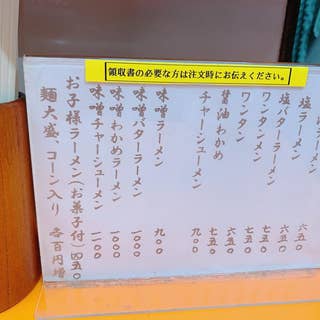 領収書の必要な方は注文時にお伝えください。
塩ラーメン 六五〇
塩バターラーメン 七五〇
ワンタンメン 七五〇
ワンタン 六五〇
醤油わかめ 七五〇
チャーシューメン 九〇〇
味噌ラーメン 九〇〇
味噌バターラーメン 一〇〇〇
味噌わかめラーメン 一〇〇〇
味噌チャーシューメン 一二〇〇
お子様ラーメン(お菓子付)四五〇
麺大盛、コーン入り 各百円増